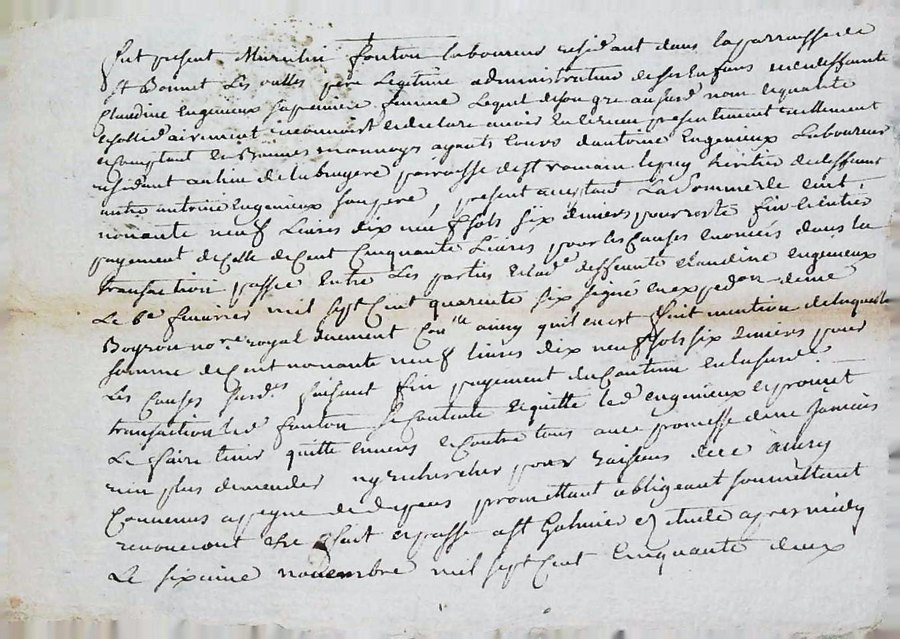 fut présent Mathelin fonton laboureur residant dans la parroisse de
st Bonnet Les oulles père Legitime administrateur de ses Enfans eu de deffuncte
Claudine Engenieux sa premiere femme Lequel de son gre au susd nom et quante
et sollidairement reconnoist et declare avoir eu et receu presentement reellement
et comptant en Bonnes monnoyes ayants Cours d'antoine Engenieux Laboureur
residant au lieu de la bruyere parroisse de st romain le puy heritier de deffunct
autre antoine Engenieux son pere, present acceptant La Somme de cent
nonante neuf Livres dix neuf sols six deniers pour reste fin et entier
payement de Celle de Cent Cinquante Livres pour les Causes enoncées dans la
transaction passée entre Les parties et lad.e deffuncte Claudine engenieux
Le 6e fevrier mil sept Cent quarante six signé en expedon de me
Boyron no.re royal duement Con.lle ainsy qu'il en ort fait mention de laquelle
somme de Cent nonante neuf livres dix neuf sols six deniers pour
Les Causes susd.es faisant fin payement du Contenu en la susd.e
transaction led. fonton se Contente et quitte led engenieux et promet
Le faire tenir quitte envers et Contre tous avec promesse de ne jamais
rien plus demander ny rechercher pour raisons de ce ainsy
Convenus a peyne de depens promettant obligeant soumettant
renonceant etc fait et passé a st Galmier Etude apres midy
Le sixieme novembre mil sept Cent Cinquante deux